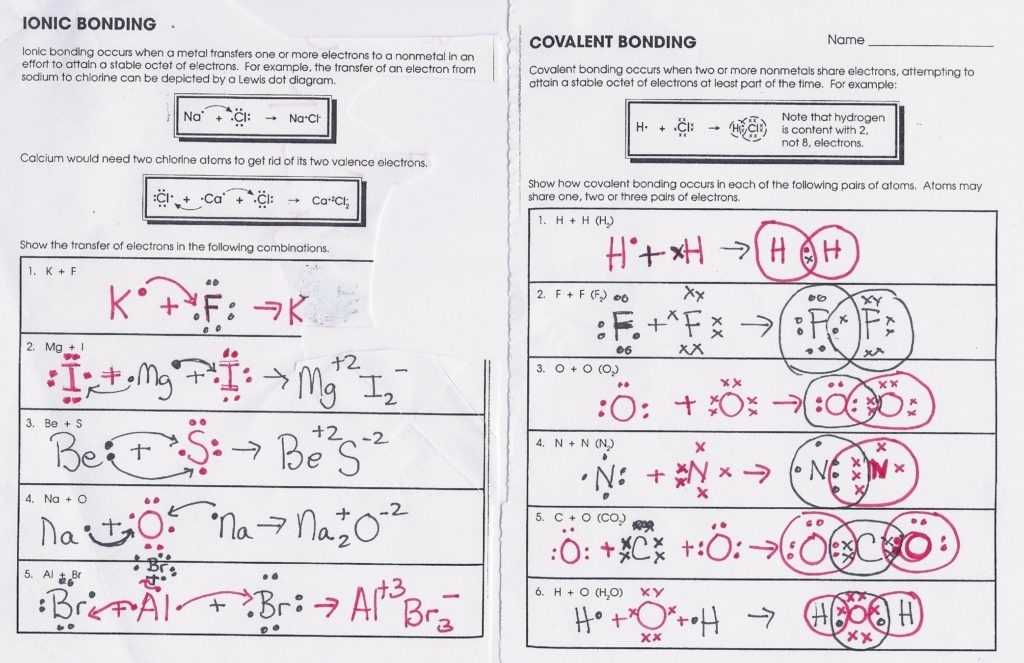 IONIC BONDING
Ionic bonding occurs when a metal transfers one or more electrons to a nonmetal in an
effort to attain a stable octet of electrons. For example, the transfer of an electron from
sodium to chlorine can be depicted by a Lewis dot diagram.
Na + Cl → Na⁺Cl⁻
Calcium would need two chlorine atoms to get rid of its two valence electrons.
Cl + Ca + Cl → Ca⁺²Cl₂⁻
Show the transfer of electrons in the following combinations.
1. K + F
K + F → K
2. Mg + I
I + Mg + I → Mg⁺² I₂⁻
3. Be + S
Be + S → Be⁺² S⁻²
4. Na + O
Na + O Na → Na₂⁺ O⁻²
5. Al + Br
Br
+
Br + Al + Br → Al⁺³ Br₃⁻
COVALENT BONDING
Name
Covalent bonding occurs when two or more nonmetals share electrons, attempting to
attain a stable octet of electrons at least part of the time. For example:
H· + Cl → H Cl
Note that hydrogen
is content with 2,
not 8, electrons.
Show how covalent bonding occurs in each of the following pairs of atoms. Atoms may
share one, two or three pairs of electrons.
1. H + H (H₂)
H + H → H H
2. F + F (F₂)
F + F → F F
3. O + O (O₂)
O + O → O O
4. N + N (N₂)
N + N → N N
5. C + O (CO₂)
O + C + O → O C O
6. H + O (H₂O)
H + O + H → H O H